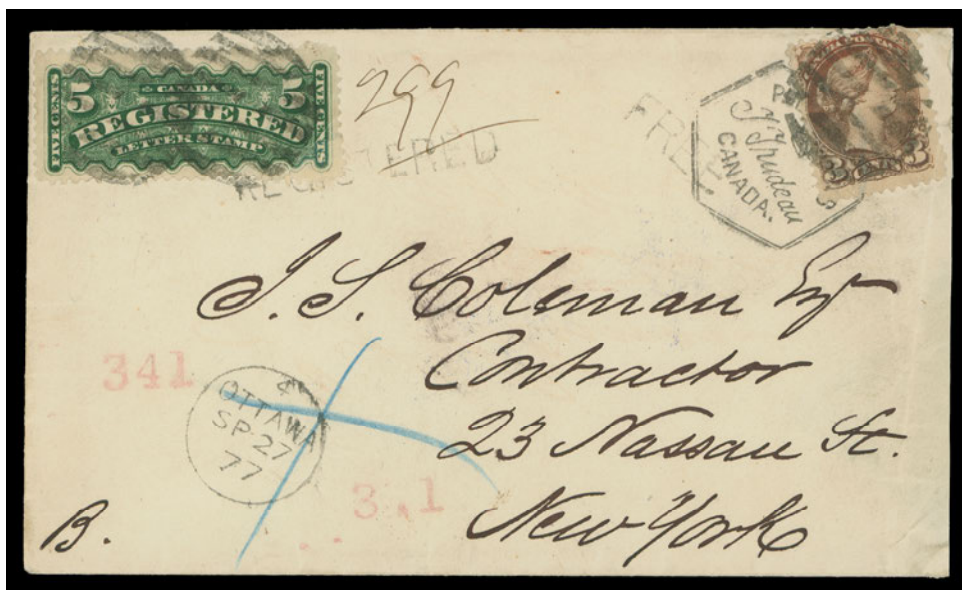 FIVE CENTS 5 CANADA 5 FIVE CENTS
REGISTERED
LETTER STAMP
299
REGISTERED
FREE
T Trudeau
CANADA.
3 3
J. S. Coleman Esq
Contractor
23 Nassau St.
New York
341
4
OTTAWA
SP 27
77
B.